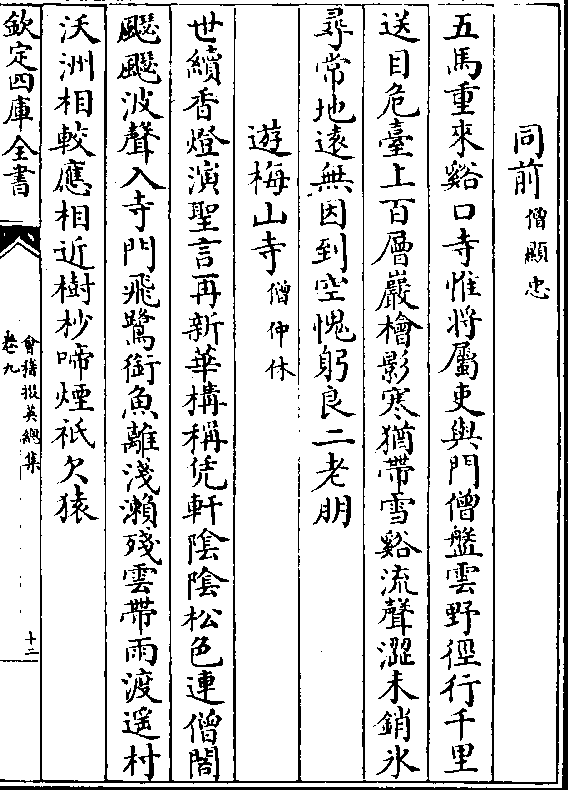 同前僧顯忠
五馬重來谿口寺惟將屬吏與門僧盤雲野徑行千里
送目危臺上百層巖檜影寒猶帶雪谿流聲澀未銷氷
尋常地遠無因到空愧躬良二老朋
遊梅山寺僧仲休
世續香燈演聖言再新華構稱凭軒陰陰松色連僧閣
颼颼波聲入寺門飛鷺銜魚離淺瀨殘雲帶雨渡遥村
沃洲相較應相近樹杪啼煙祇欠猿
欽定四庫全書
會稽掇英總集
卷九
十二